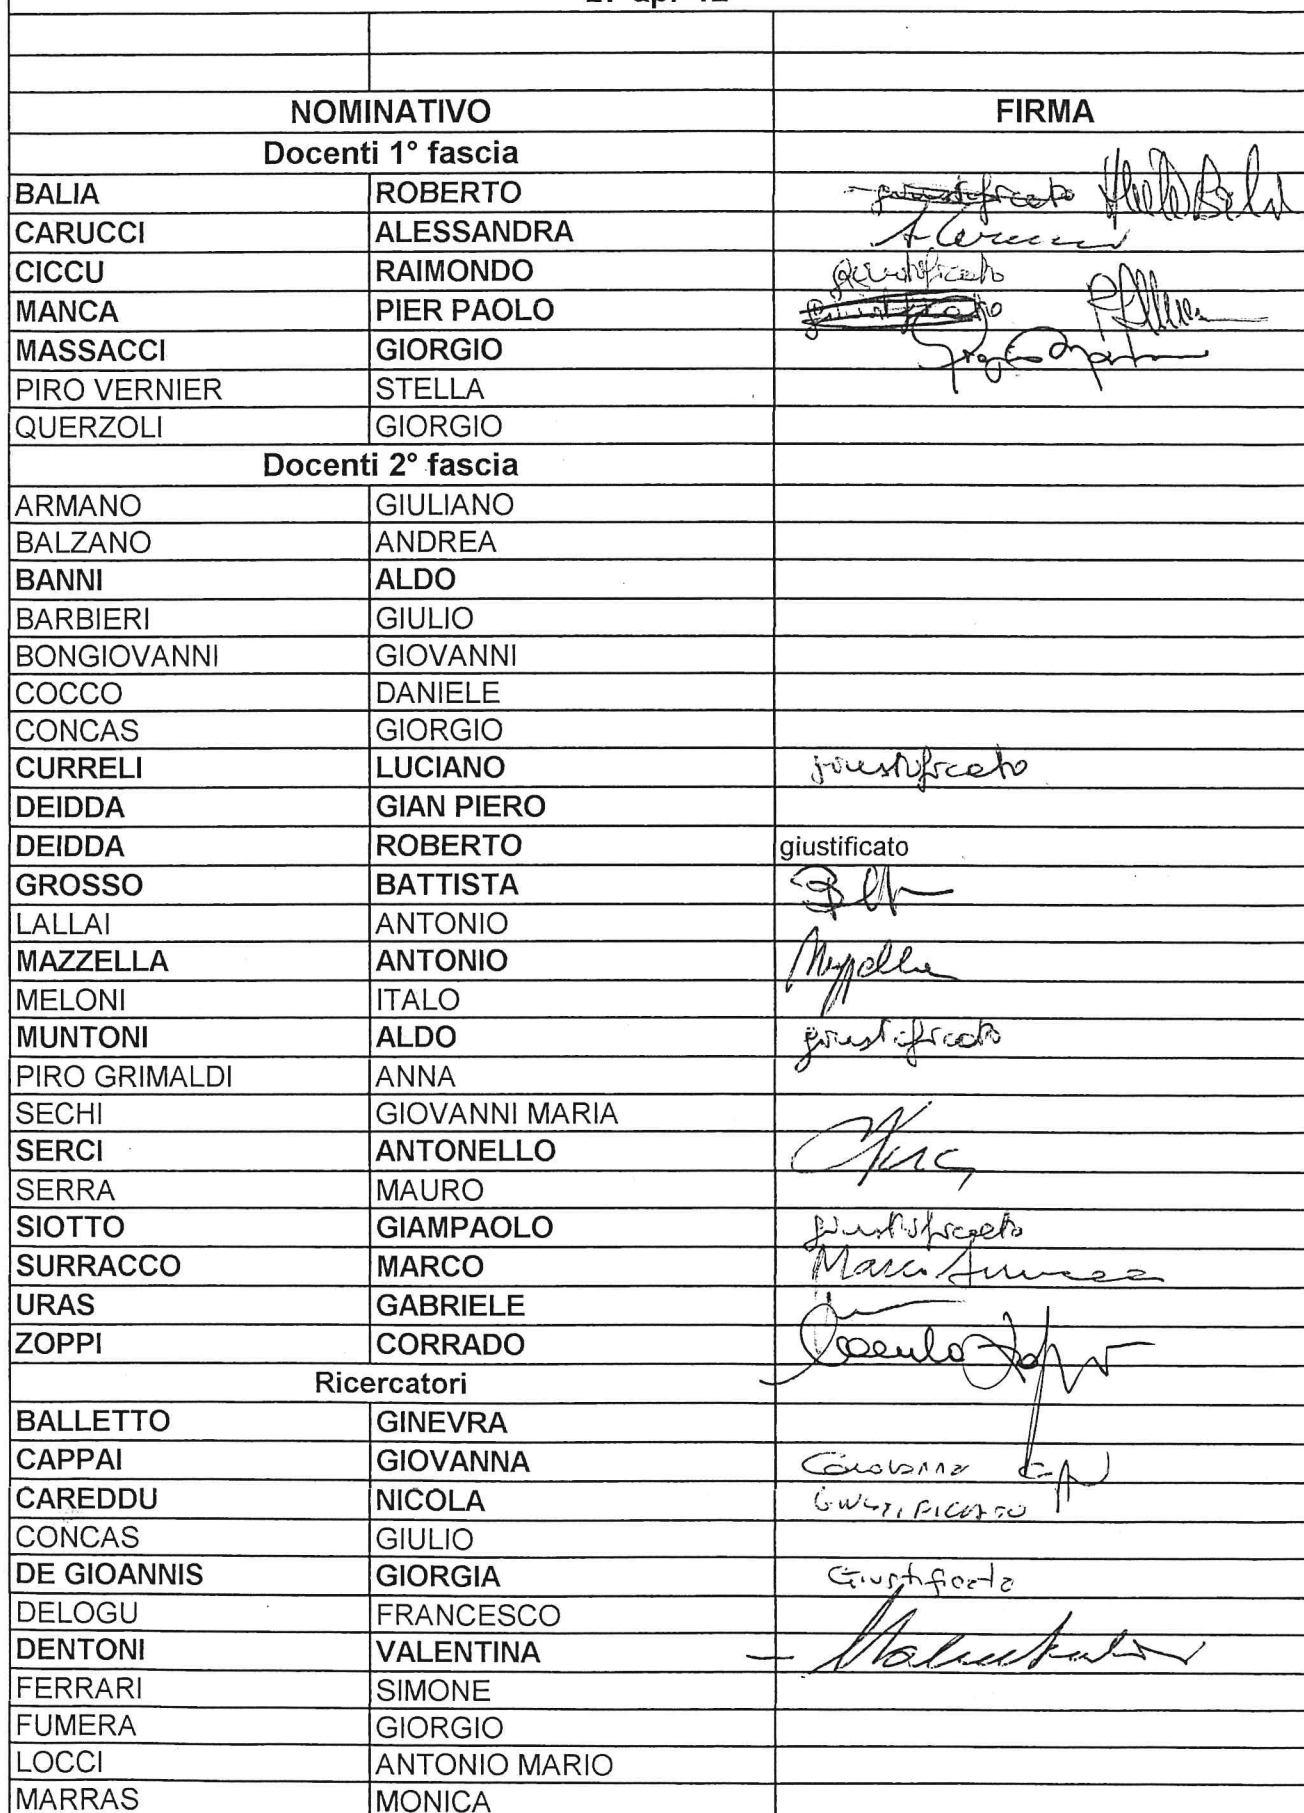 NOMINATIVO FIRMA
Docenti 1° fascia
BALIA ROBERTO giustificato
CARUCCI ALESSANDRA A Carucci
CICCU RAIMONDO giustificato
MANCA PIER PAOLO giustificato
MASSACCI GIORGIO
PIRO VERNIER STELLA
QUERZOLI GIORGIO
Docenti 2° fascia
ARMANO GIULIANO
BALZANO ANDREA
BANNI ALDO
BARBIERI GIULIO
BONGIOVANNI GIOVANNI
COCCO DANIELE
CONCAS GIORGIO
CURRELI LUCIANO giustificato
DEIDDA GIAN PIERO
DEIDDA ROBERTO giustificato
GROSSO BATTISTA
LALLAI ANTONIO
MAZZELLA ANTONIO Mazzella
MELONI ITALO
MUNTONI ALDO giustificato
PIRO GRIMALDI ANNA
SECHI GIOVANNI MARIA
SERCI ANTONELLO
SERRA MAURO
SIOTTO GIAMPAOLO giustificato
SURRACCO MARCO Marco Surracco
URAS GABRIELE
ZOPPI CORRADO Corrado Zoppi
Ricercatori
BALLETTO GINEVRA
CAPPAI GIOVANNA Giovanna
CAREDDU NICOLA GIUSTIFICATO
CONCAS GIULIO
DE GIOANNIS GIORGIA Giustificata
DELOGU FRANCESCO
DENTONI VALENTINA
FERRARI SIMONE
FUMERA GIORGIO
LOCCI ANTONIO MARIO
MARRAS MONICA